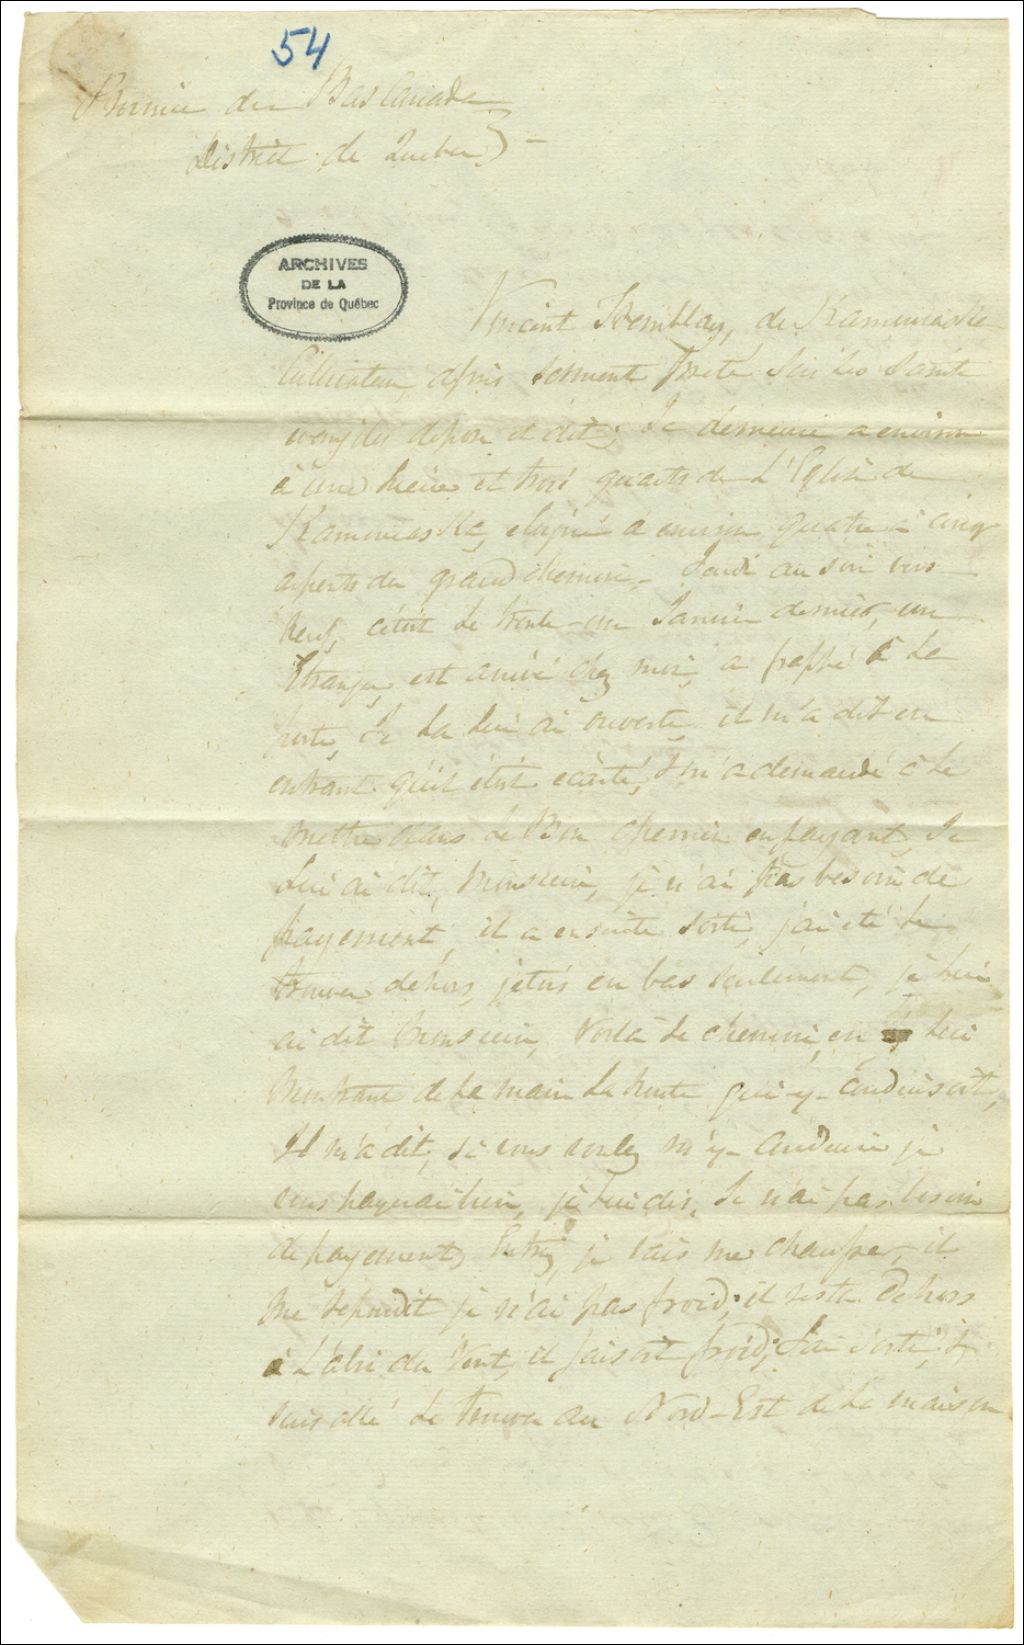 54
Province du Bas Canada
District de Quebec } -
ARCHIVES
DE LA
Province de Québec
Vincent Tremblay, de Kamouraska
Cultivateur, après serment prêté sur les Saints
evangiles depose et dit; Je demeure a environ
à une lieue et trois quarts de L'Eglise de
Kamouraska, eloigné d'environ quatre à cinq
arpents du grand chemin - Jeudi au soir vers
neuf, c'étoit Le trente-un Janvier dernier, un
Etranger est arrivé chez moi, a frappé à La
porte, Je La lui ai ouverte, il m'a dit en
entrant qu'il étoit ecarté, & m'a demandé à Le
mettre dans Le Bon chemin en payant, Je
Lui ai dit, Monsieur, je n'ai pas besoin de
payement, il a ensuite sorti, j'ai été Le
trouver dehors, j'etois en bas seulement, je Lui
ai dit Monsieur, Voila Le chemin, en Lui
Montrant de La main La route qui y conduisoit,
Il m'a dit, si vous voulez m'y conduire je
vous payerai bien, je Lui dis, Je n'ai pas besoin
de payement, Entrez, je vais me chauffer, il
me repondit je n'ai pas froid, il resta dehors
à L'abri du Vent, il faisoit froid; J'ai sorti, &
suis allé Le trouver au Nord-Est de La maison